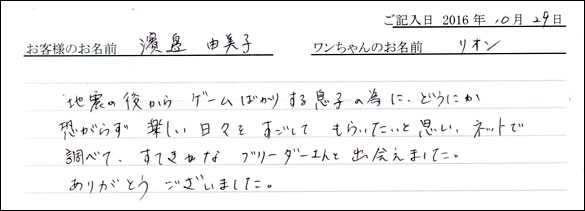 ご記入日 2016年 10月 29日
お客様のお名前 濱邉 由美子 ワンちゃんのお名前 リオン
地震の後から ゲームばかりする息子の為に、どうにか
恐がらず 楽しい日々を すごして もらいたいと思い、ネットで
調べて、すてきなな ブリーダーさんと 出会えました。
ありがとう ございました。